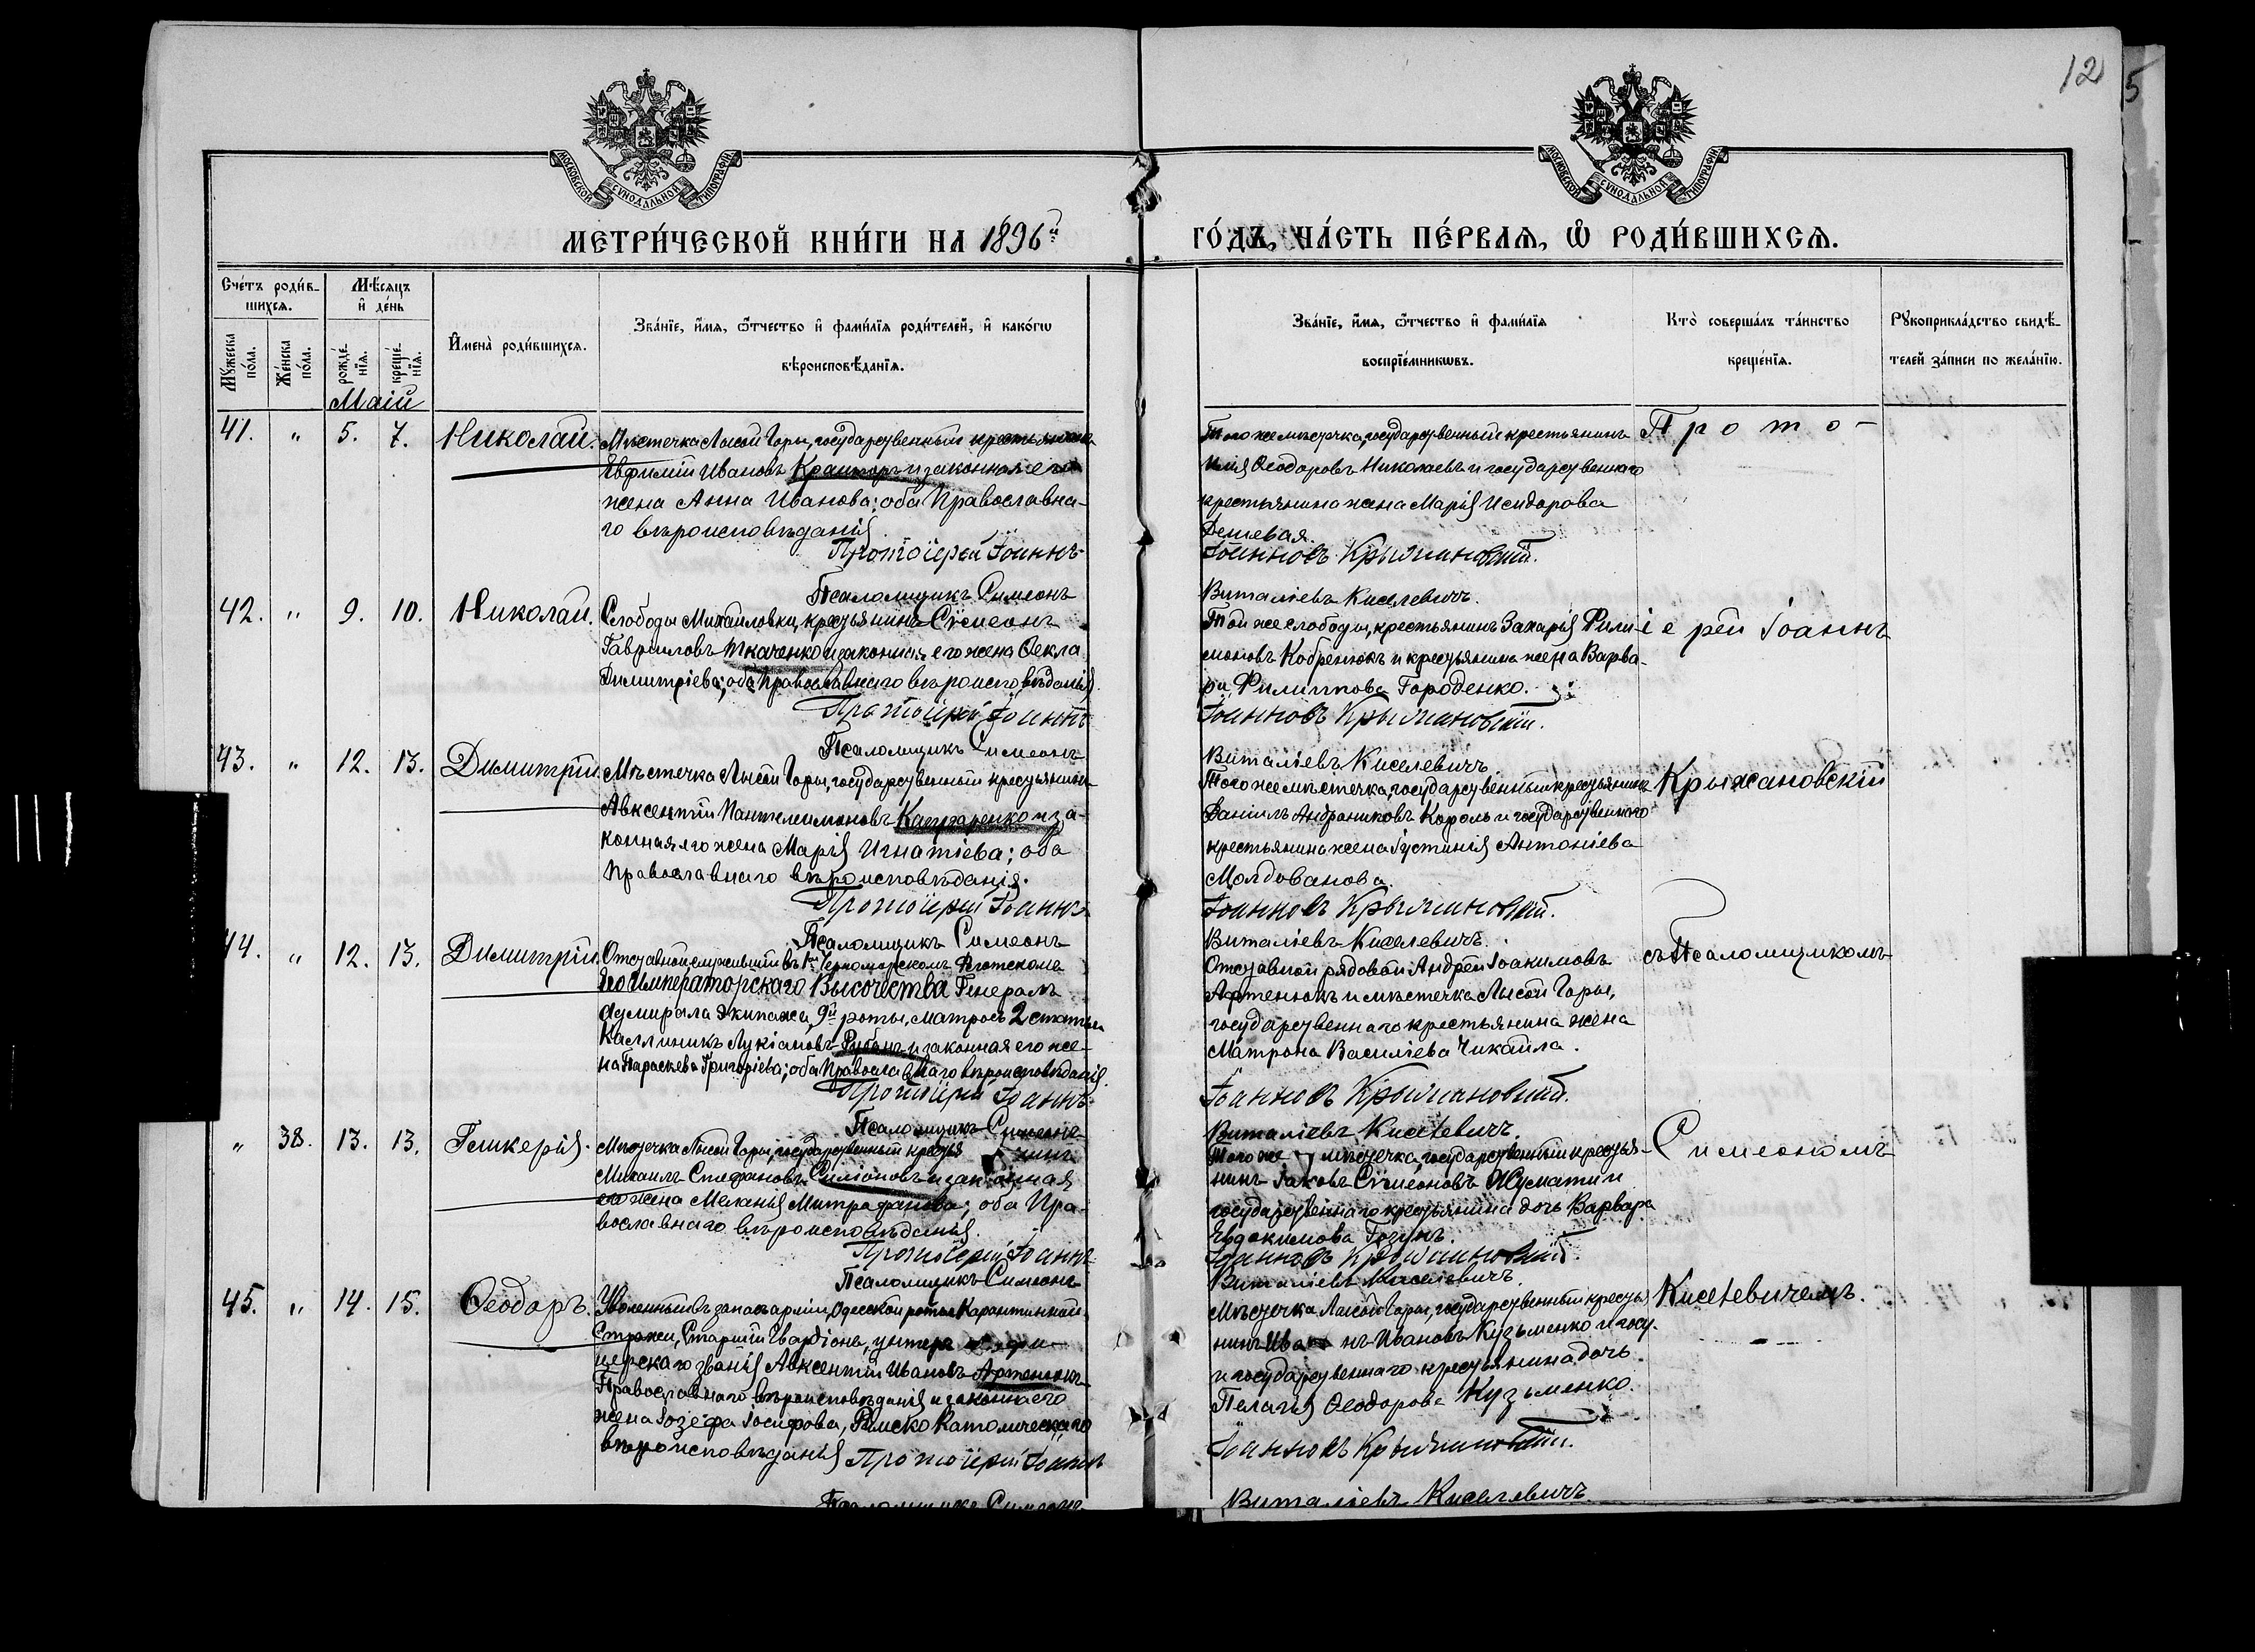 12
5
МОСКОВСКОЙ СѴНОДАЛЬНОЙ ТИПОГРАФІИ
МОСКОВСКОЙ СѴНОДАЛЬНОЙ ТИПОГРАФІИ
МЕТРИ́ЧЕСКОЙ КНИ́ГИ НА 1896й
ГО́ДЪ, ЧА́СТЬ ПЕ́РВАѦ, Ѽ РОДИ́ВШИХСѦ.
Сче́тъ роди́в-
шихсѧ.
Мꙋ́жеска по́ла.
Же́нска по́ла.
Мѣ́сѧцъ
и҆ де́нь
рожде́-нїѧ.
креще́-нїѧ.
Маій
И҆мена̀ роди́вшихсѧ.
Зва́нїе, и҆́мѧ, ѻ҆́тчество и҆ фами́лїѧ роди́телей, и҆ како́гѡ
вѣроисповѣ́данїѧ.
Зва́нїе, и҆́мѧ, ѻ҆́тчество и҆ фами́лїѧ
воспрїе́мникѡвъ.
Кто̀ соверша́лъ та́инство
креще́нїѧ.
Рꙋкоприкла́дство свидѣ́-
телей за́писи по жела́нїю.
41. " 5. 7. Николай.
Мѣстечка Лысой Горы, государственный крестьянинъ
Евфимій Ивановъ Крамаръ и законная его
жена Анна Иванова; оба Православна-
го вѣроисповѣданія.
Протоіерей Іоаннъ
Псаломщикъ Симеонъ
Того же мѣстечка, государственный крестьянинъ
Илія Ѳеодоровъ Николаевъ и государственнаго
крестьянина жена Марія Исидорова
Дешевая.
Іоанновъ Крыжановскій.
Виталіевъ Киселевичъ.
Прото-
42. " 9. 10. Николай.
Слободы Михайловки, крестьянинъ Сѵмеонъ
Гавріиловъ Ткаченко и законная его жена Ѳекла
Димитріева; оба Православнаго вѣроисповѣданія.
Протоіерей Іоаннъ
Псаломщикъ Симеонъ
Той же слободы, крестьянинъ Захарія Фили-
моновъ Кобренюкъ и крестьянина жена Варва-
ра Филиппова Городенко.
Іоанновъ Крыжановскій.
Виталіевъ Киселевичъ
іерей Іоаннъ
43. " 12. 13. Димитрій.
Мѣстечка Лысой Горы, государственный крестьянинъ
Авксентій Пантелимоновъ и за-
конная его жена Марія Игнатіева; оба
Православнаго вѣроисповѣданія.
Протоіерей Іоаннъ
Псаломщикъ Симеонъ
Того же мѣстечка, государственный крестьянинъ
Даніилъ Андрониковъ Король и государственнаго
крестьянина жена Іустинія Антоніева
Молдованова.
Іоанновъ Крыжановскій.
Виталіевъ Киселевичъ.
Крыжановскій
44. " 12. 13. Димитрій.
Отставной служившій въ 1мъ Черноморскомъ Флотскомъ
Его Императорскаго Высочества Генералъ
Адмирала экипажа, 9й роты, матросъ 2 статьи
Каллиникъ Лукіановъ Рубанъ и законная его же-
на Параскева Григоріева; оба Православнаго вѣроисповѣданія.
Протоіерей Іоаннъ
Псаломщикъ Симеонъ
Отставной рядовой Андрей Іоакимовъ
Артенюкъ и мѣстечка Лысой Горы,
государственнаго крестьянина жена
Матрона Василіева Чикайла.
Іоанновъ Крыжановскій.
Виталіевъ Киселевичъ.
съ Псаломщикомъ
" 38. 13. 13. Гликерія.
Мѣстечка Лысой Горы, государственный крестьянинъ
Михаилъ Стефановъ и законная
его жена Меланія Митрофанова; оба Пра-
вославнаго вѣроисповѣданія.
Протоіерей Іоаннъ
Псаломщикъ Симеонъ
Того же мѣстечка, государственный крестья-
нинъ Іаковъ Сѵмеоновъ и
государственнаго крестьянина дочь Варвара
Евдокимова Гозунъ.
Іоанновъ Крыжановскій.
Виталіевъ Киселевичъ.
Симеономъ
45. " 14. 15. Ѳеодоръ.
Уволенный въ запасъ арміи, Одесской роты Карантинной
Стражи, Старшій Гвардіонъ, унтеръ офи-
церскаго званія Авксентій Ивановъ Артенюкъ
Православнаго вѣроисповѣданія и законная его
жена Іозефа Іосифова, Римско Католическаго
вѣроисповѣданія Протоіерей Іоаннъ
Псаломщикъ Симеонъ
Мѣстечка Лысой Горы, государственный крестья-
нинъ Иванъ Ивановъ Кузьменко и госу-
и государственнаго крестьянина дочь
Пелагія Ѳеодорова Кузьменко.
Іоанновъ Крыжановскій.
Виталіевъ Киселевичъ.
Киселевичемъ.